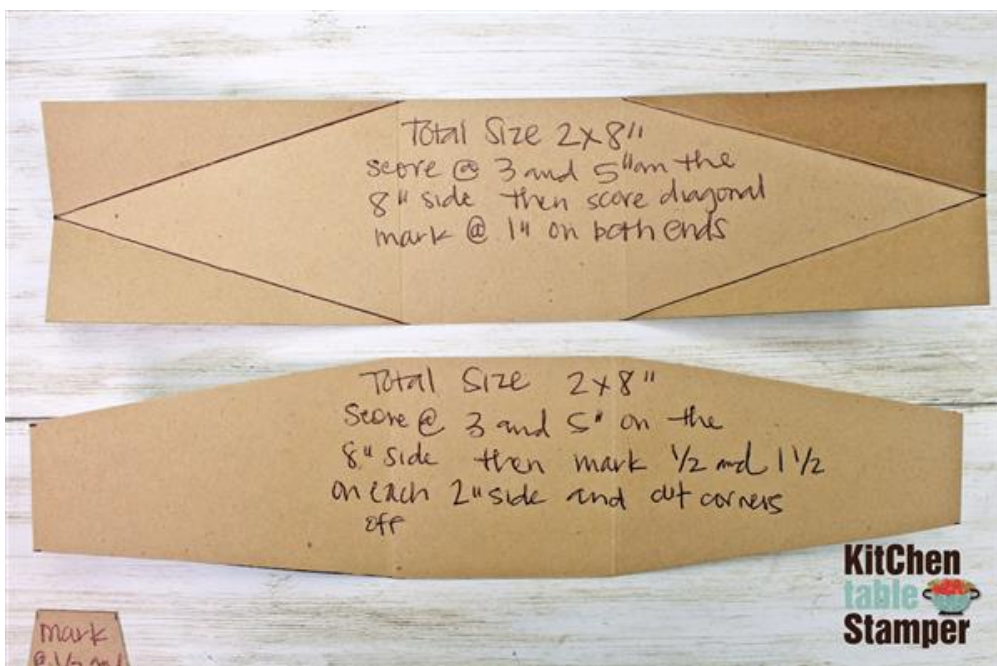 Total Size 2x8"
score @ 3 and 5" on the
8" side then score diagonal
mark @ 1" on both ends
Total Size 2x8"
Score @ 3 and 5" on the
8" side then mark 1/2 and 1 1/2
on each 2" side and cut corners
off
mark
@ 1/2 and
KitChen
table
Stamper